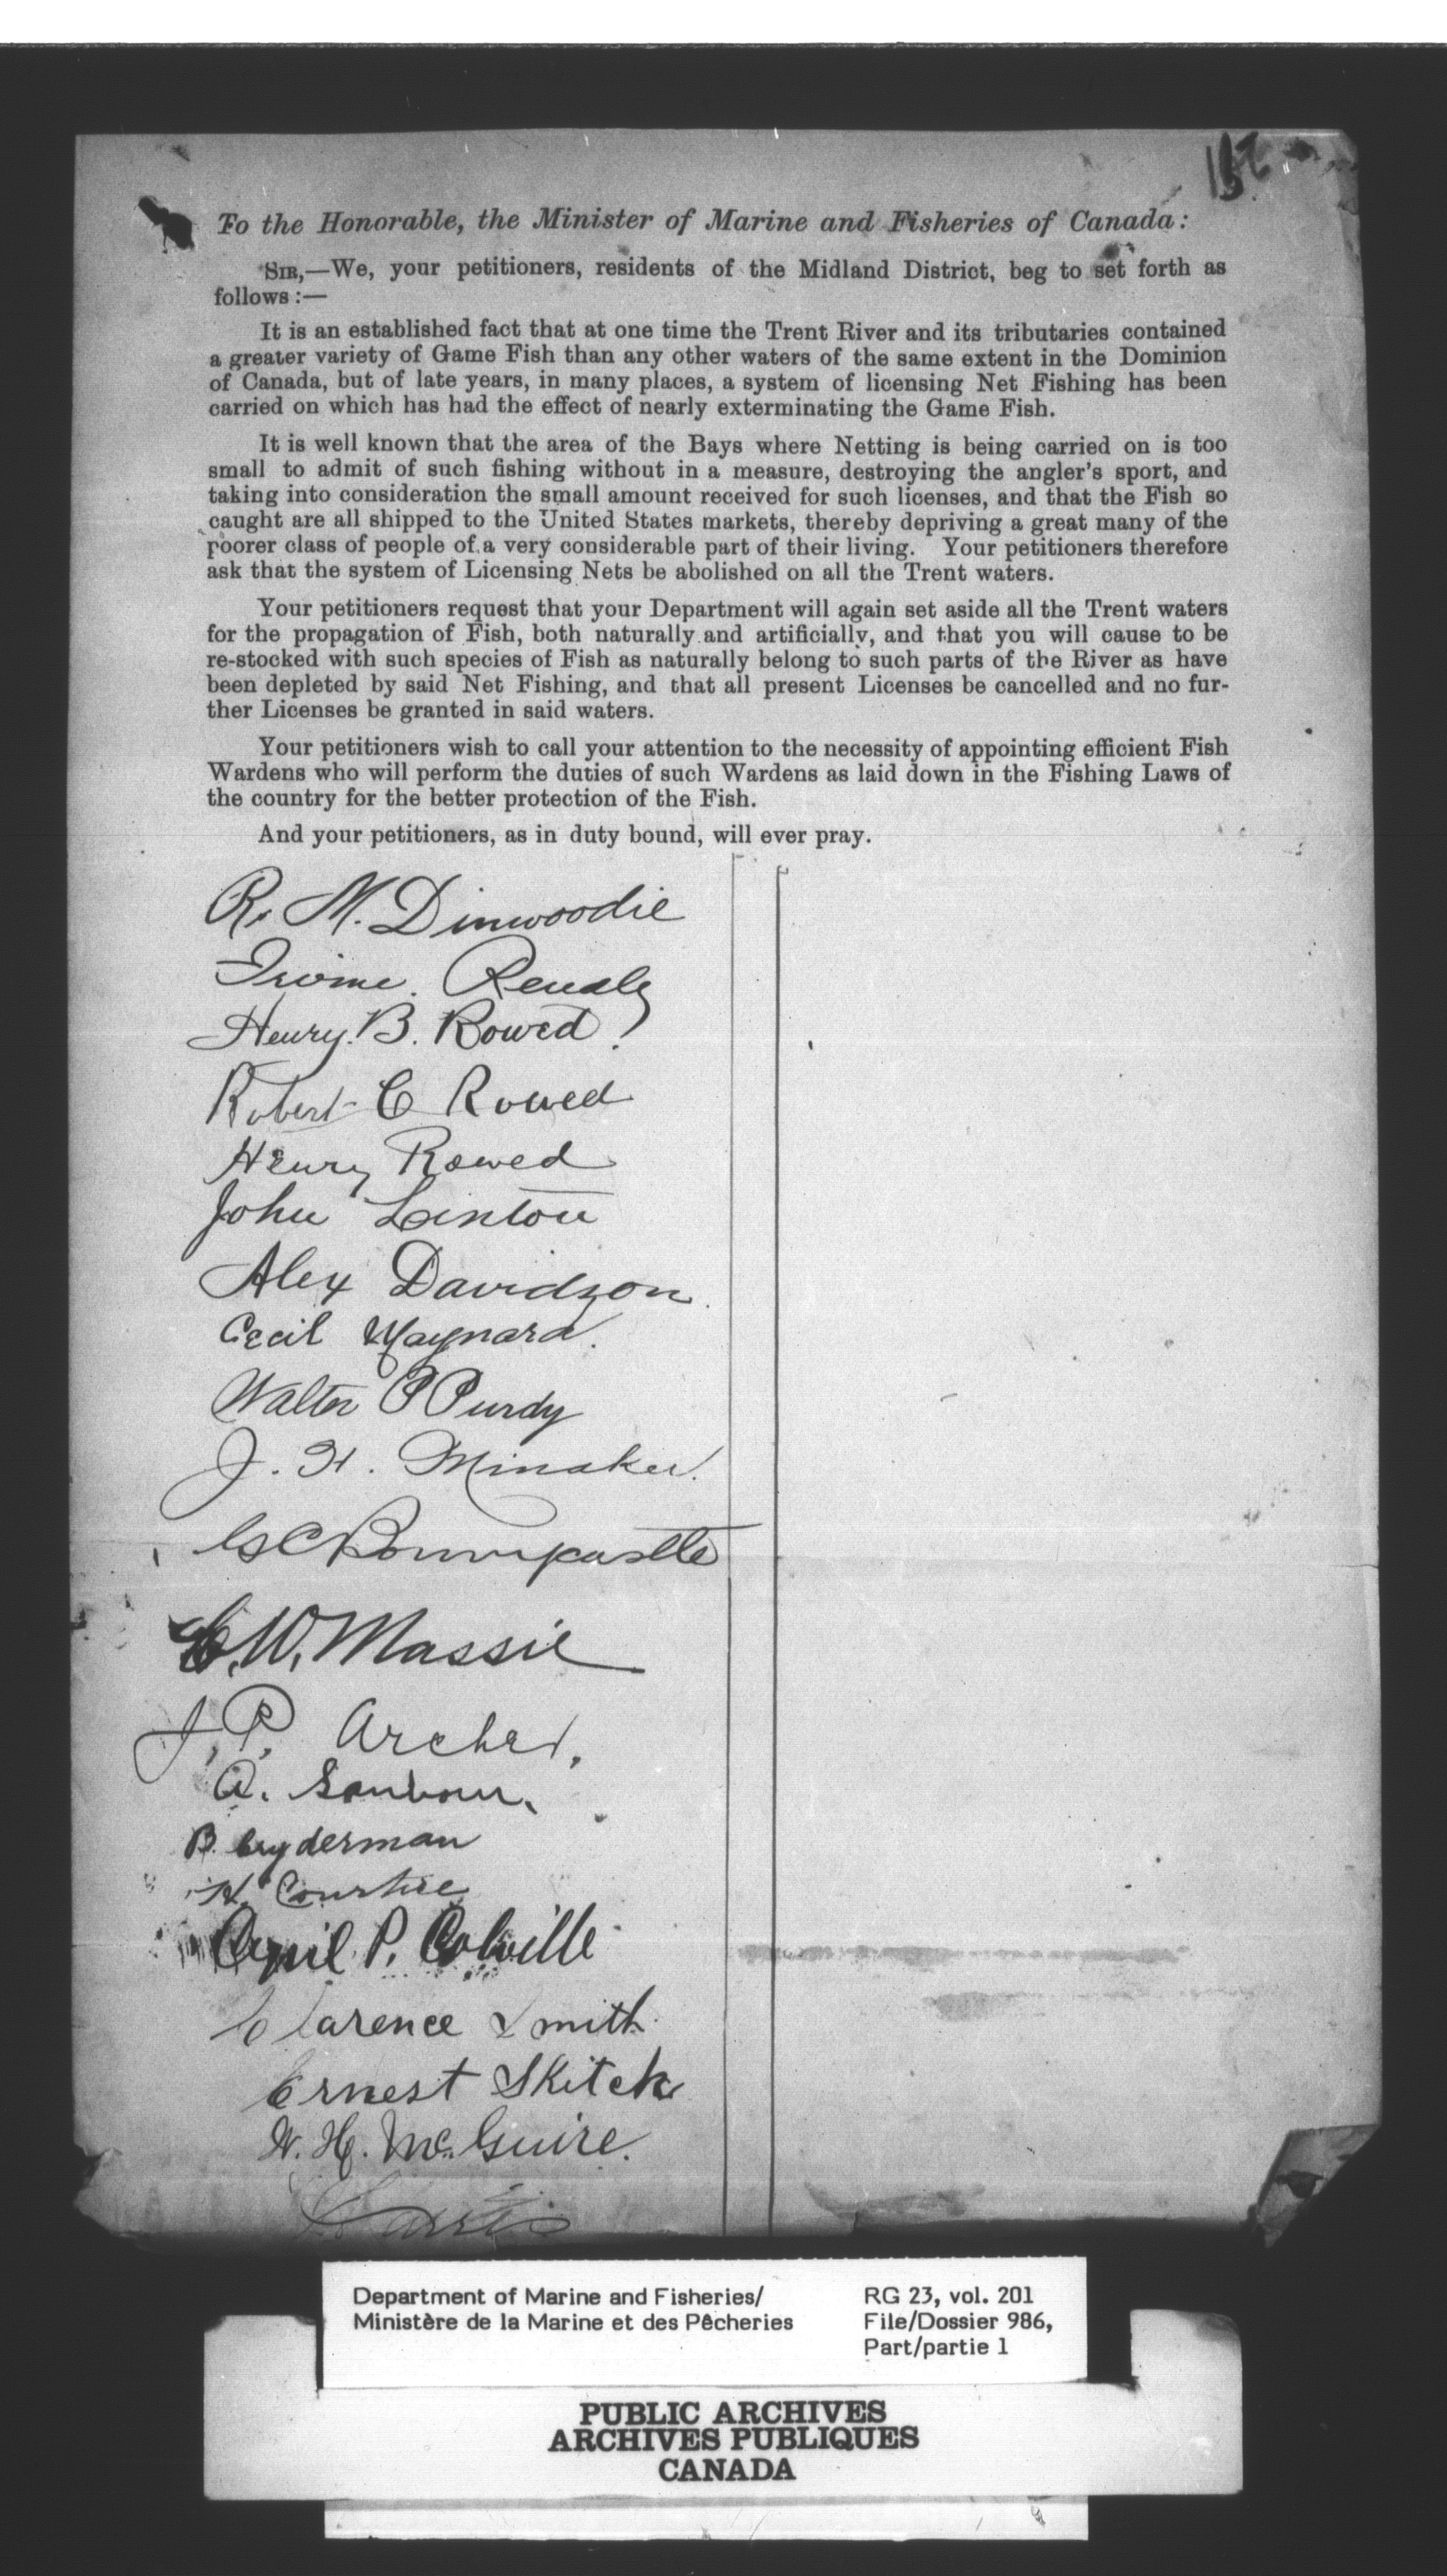 To the Honorable, the Minister of Marine and Fisheries of Canada:
SIR,—We, your petitioners, residents of the Midland District, beg to set forth as
follows :—
It is an established fact that at one time the Trent River and its tributaries contained
a greater variety of Game Fish than any other waters of the same extent in the Dominion
of Canada, but of late years, in many places, a system of licensing Net Fishing has been
carried on which has had the effect of nearly exterminating the Game Fish.
It is well known that the area of the Bays where Netting is being carried on is too
small to admit of such fishing without in a measure, destroying the angler's sport, and
taking into consideration the small amount received for such licenses, and that the Fish so
caught are all shipped to the United States markets, thereby depriving a great many of the
poorer class of people of a very considerable part of their living. Your petitioners therefore
ask that the system of Licensing Nets be abolished on all the Trent waters.
Your petitioners request that your Department will again set aside all the Trent waters
for the propagation of Fish, both naturally and artificially, and that you will cause to be
re-stocked with such species of Fish as naturally belong to such parts of the River as have
been depleted by said Net Fishing, and that all present Licenses be cancelled and no fur-
ther Licenses be granted in said waters.
Your petitioners wish to call your attention to the necessity of appointing efficient Fish
Wardens who will perform the duties of such Wardens as laid down in the Fishing Laws of
the country for the better protection of the Fish.
And your petitioners, as in duty bound, will ever pray.
R. M. Dinwoodie
Henry. B. Rowed
Robert C Rowed
Henry Rowed
John Linton
Alex Davidson
Cecil Maynard.
Walter P Purdy
J. H. Minaker.
Bonnycastle
C. W. Massie
J. P. Archer.
A.
B. Cryderman
H. Courtice
Cyril P. Colville
Clarence Smith
Ernest Skitch
W. H. McGuire.
Harris
Department of Marine and Fisheries/
Ministère de la Marine et des Pêcheries
RG 23, vol. 201
File/Dossier 986,
Part/partie 1
PUBLIC ARCHIVES
ARCHIVES PUBLIQUES
CANADA